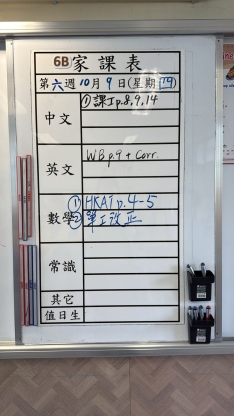 6B家課表
第六週10月9日(星期四)
中文
①課工p.8,9,14
英文
WB p.9 + Corr.
數學
①HKAT p.4-5
②單工改正
常識
其它
值日生